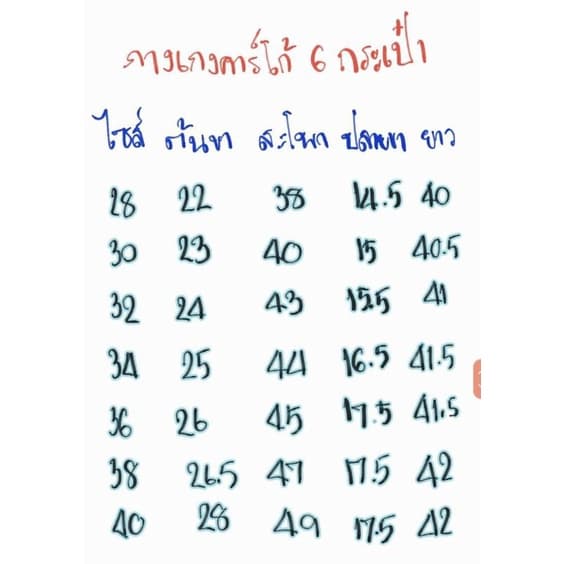 กางเกงคาร์โก้ 6 กระเป๋า
ไซส์ ต้นขา สะโพก ปลายขา ยาว
28 22 38 14.5 40
30 23 40 15 40.5
32 24 43 15.5 41
34 25 44 16.5 41.5
36 26 45 17.5 41.5
38 26.5 47 17.5 42
40 28 49 17.5 42